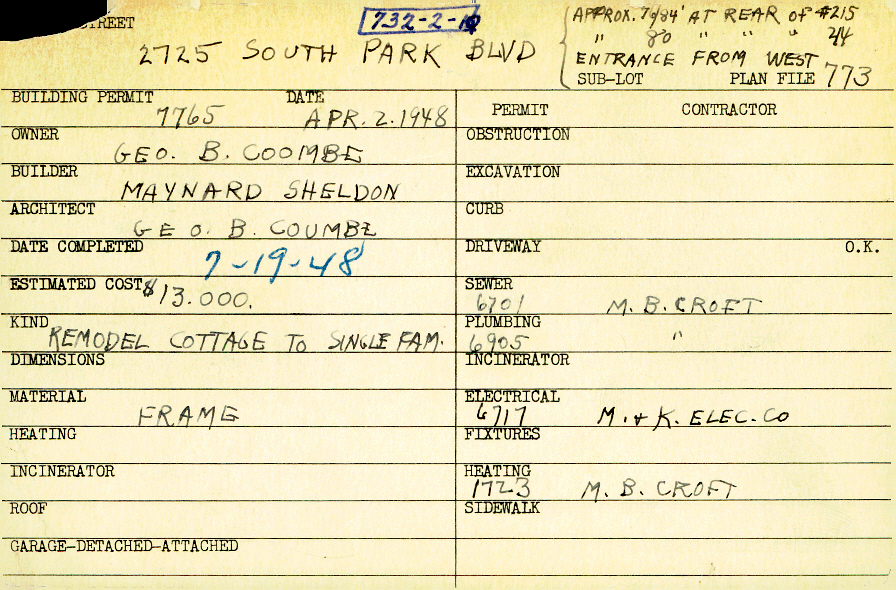 STREET 732-2-10
2725 SOUTH PARK BLVD
APPROX. 84' AT REAR OF #215
" 80 " " " 24
ENTRANCE FROM WEST
SUB-LOT PLAN FILE 773
BUILDING PERMIT 7765 DATE APR. 2. 1948
OWNER GEO. B. COOMBE
BUILDER MAYNARD SHELDON
ARCHITECT GEO. B. COUMBE
DATE COMPLETED 7-19-48
ESTIMATED COST $13.000.
KIND REMODEL COTTAGE TO SINGLE FAM.
DIMENSIONS
MATERIAL FRAME
HEATING
INCINERATOR
ROOF
GARAGE-DETACHED-ATTACHED
PERMIT CONTRACTOR
OBSTRUCTION
EXCAVATION
CURB
DRIVEWAY O.K.
SEWER
6701 M. B. CROFT
PLUMBING
6905 "
INCINERATOR
ELECTRICAL
6717 M. & K. ELEC. CO
FIXTURES
HEATING
1723 M. B. CROFT
SIDEWALK